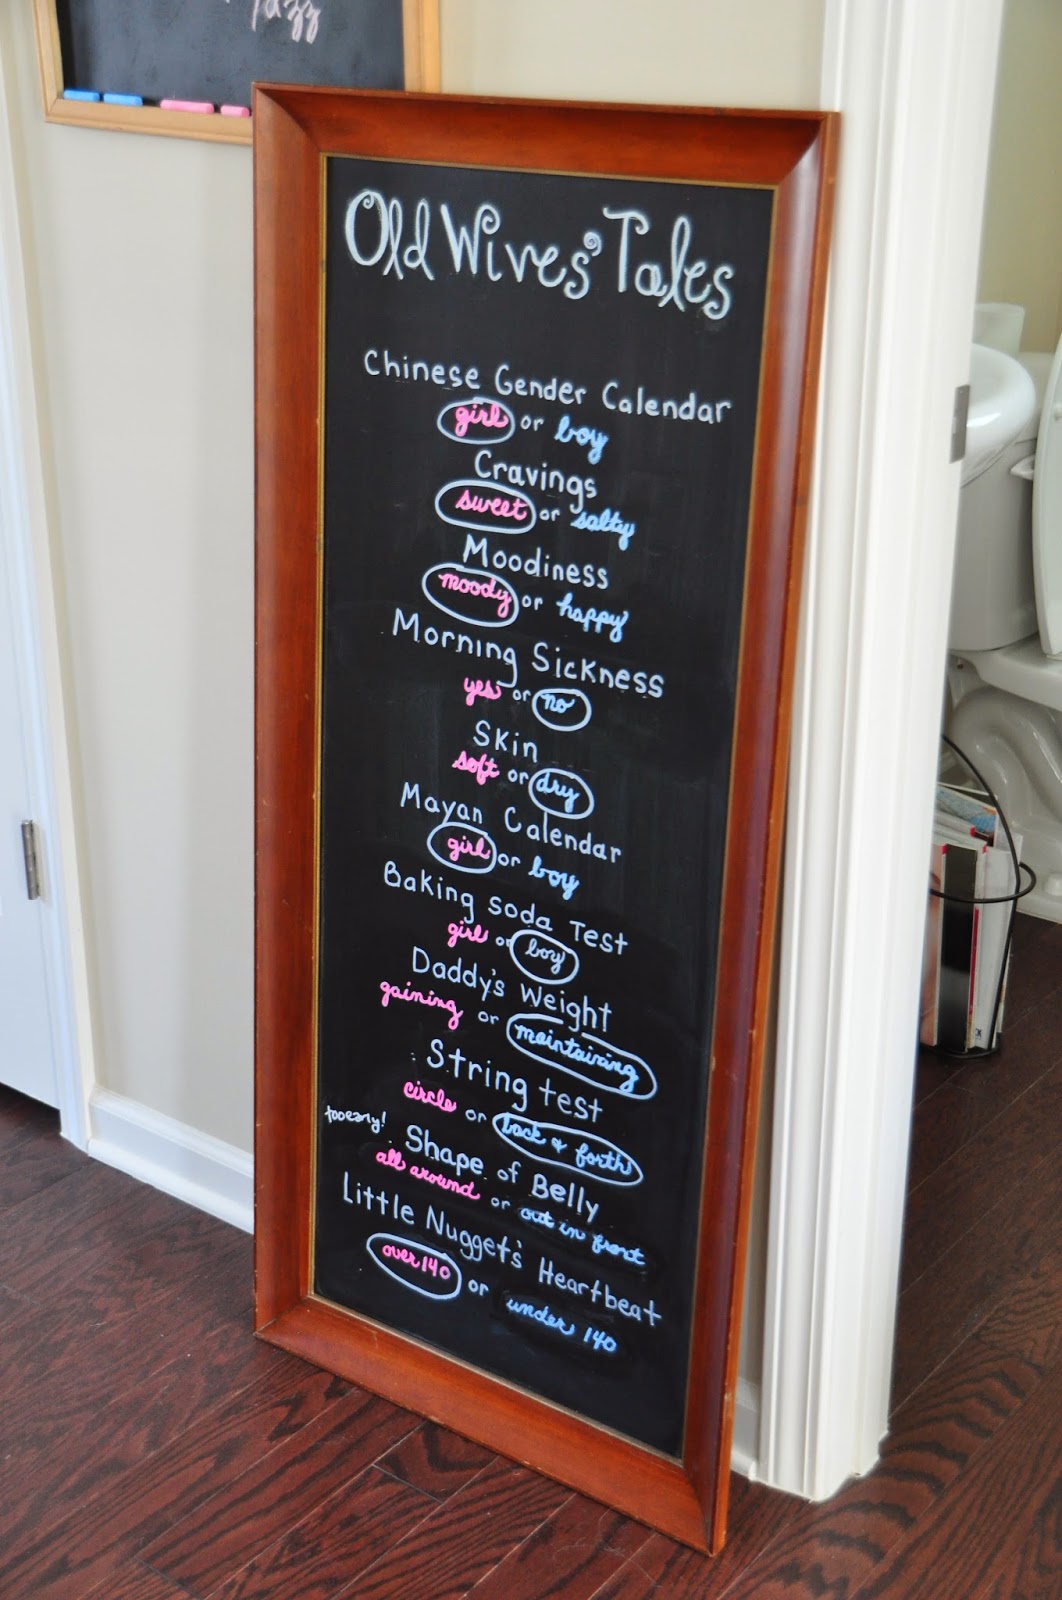 Jazz
Old Wives' Tales
Chinese Gender Calendar
girl or boy
Cravings
sweet or salty
Moodiness
moody or happy
Morning Sickness
yes or no
Skin
soft or dry
Mayan Calendar
girl or boy
Baking soda Test
girl or boy
Daddy's Weight
gaining or maintaining
String test
circle or back & forth
too early! Shape of Belly
all around or out in front
Little Nugget's Heartbeat
over 140 or under 140